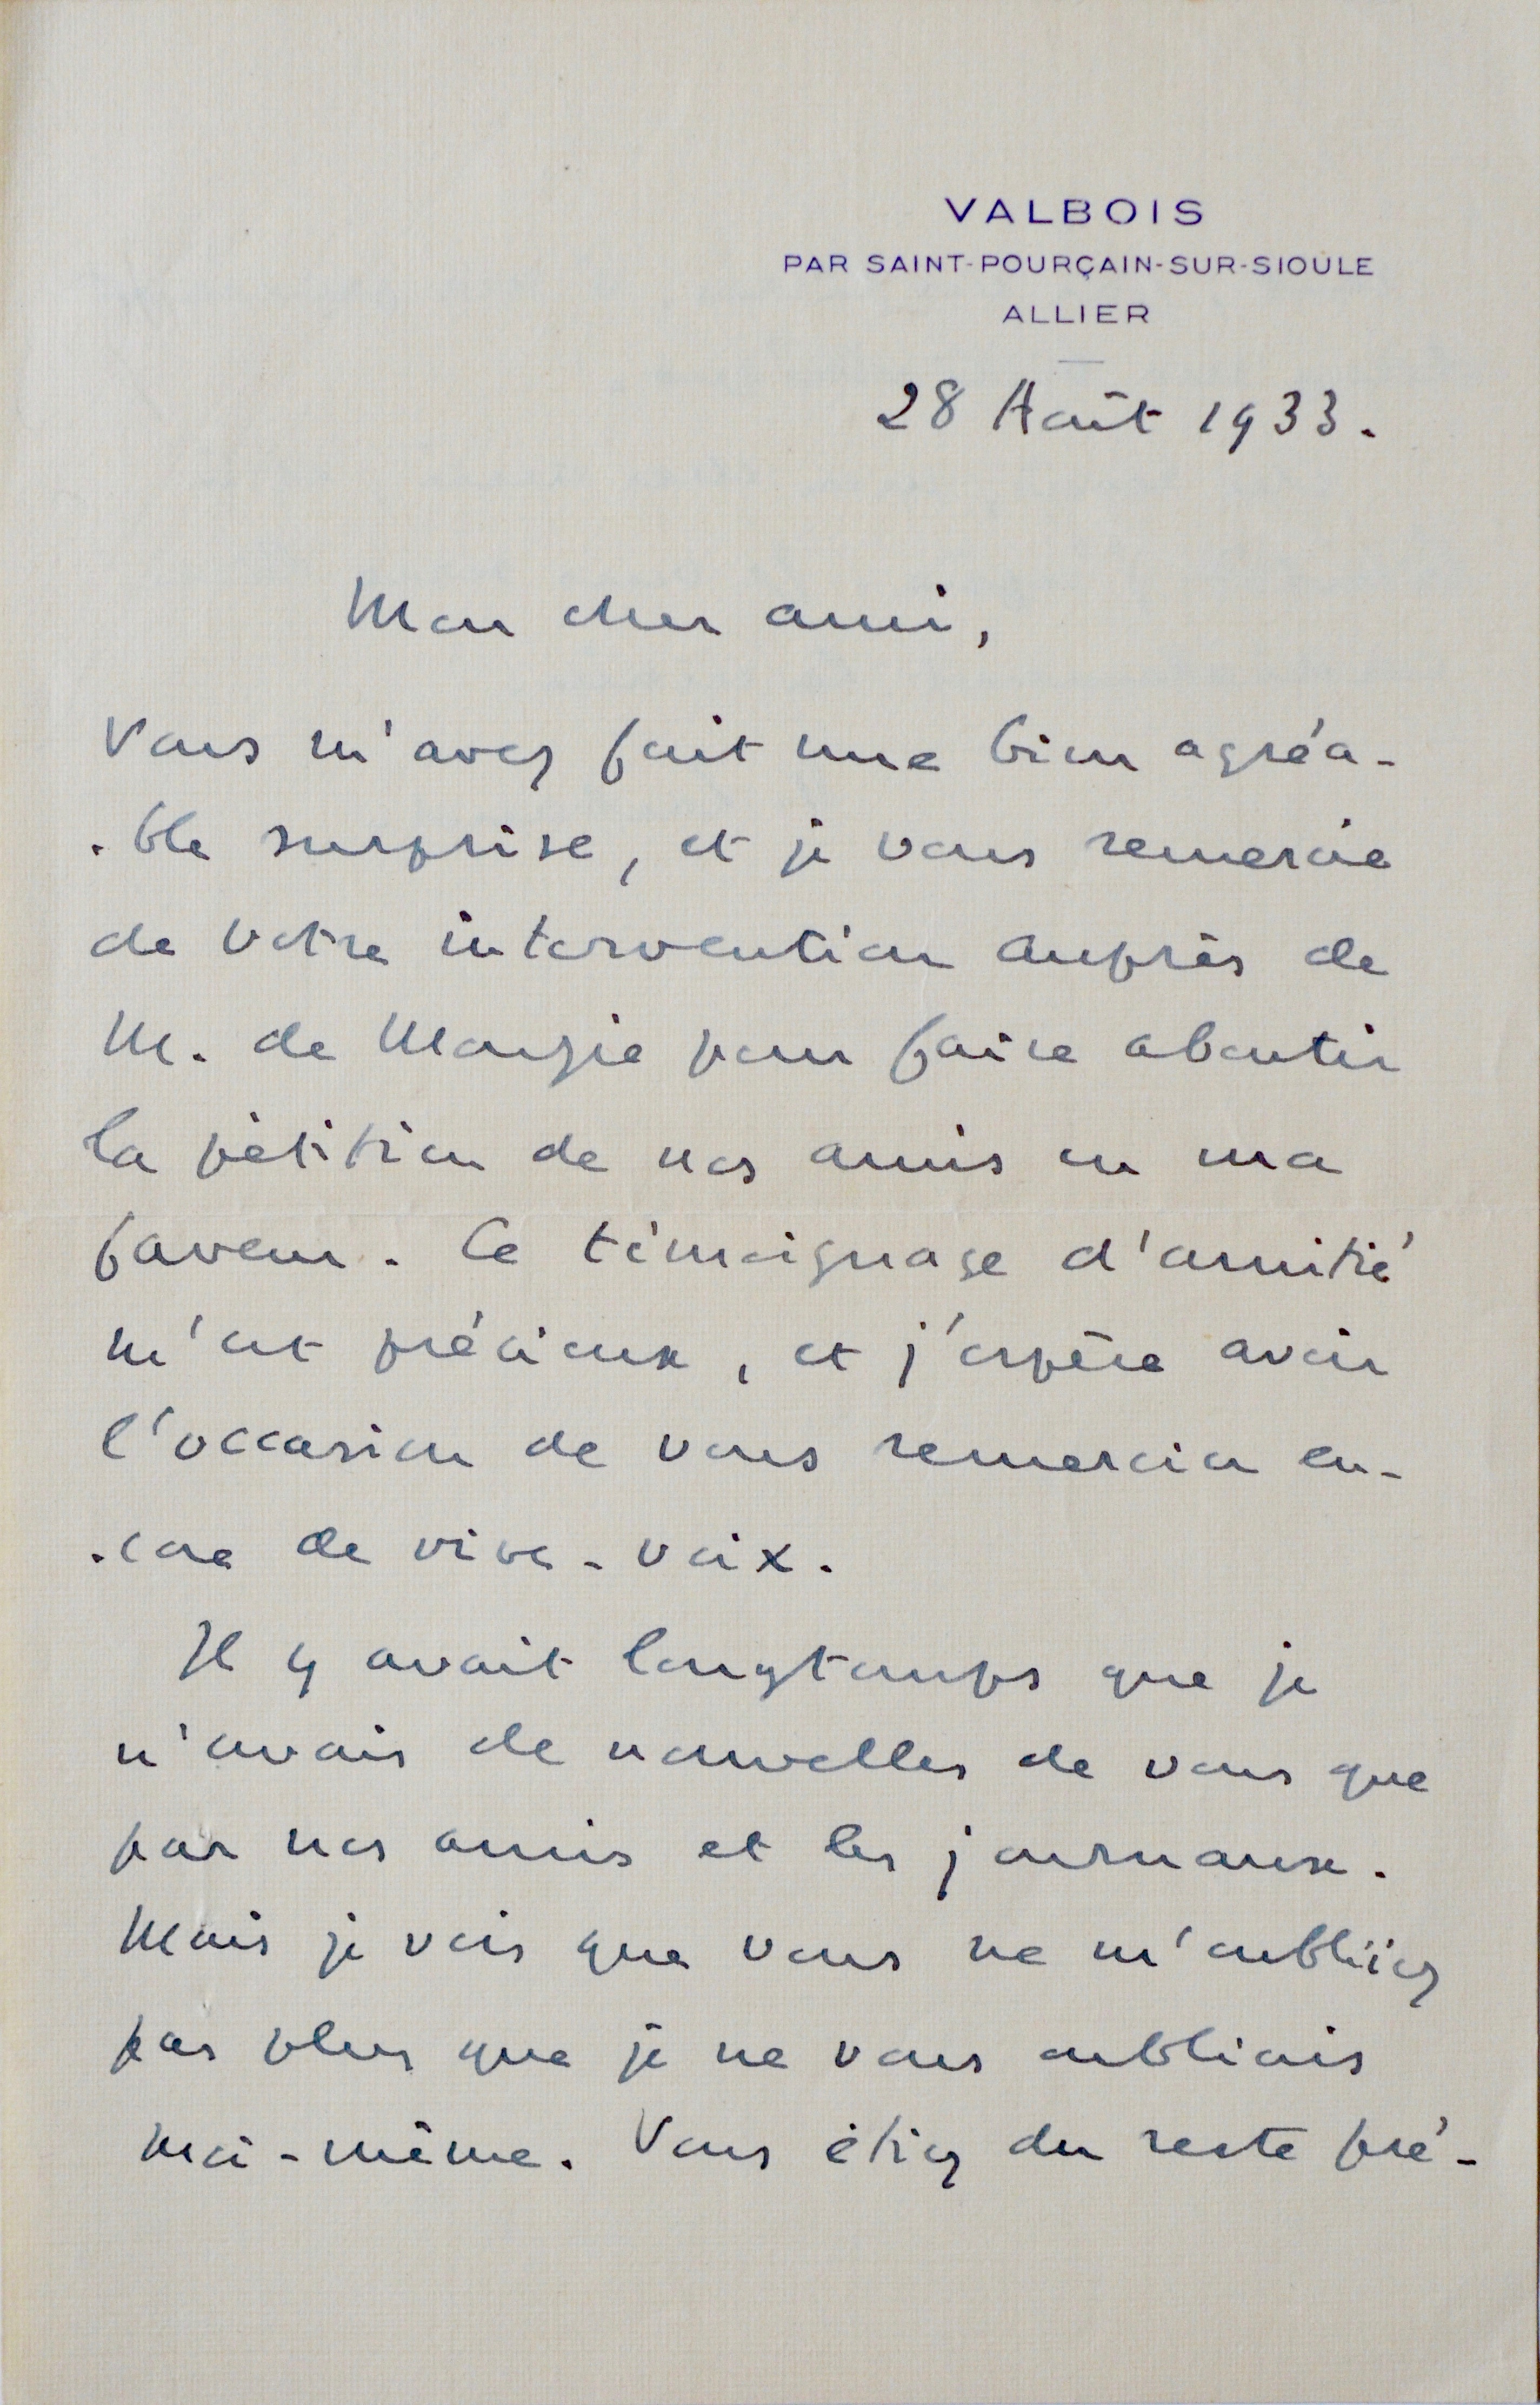 VALBOIS
PAR SAINT-POURÇAIN-SUR-SIOULE
ALLIER
28 Août 1933.
Mon cher ami,
Vous m'avez fait une bien agréa-
-ble surprise, et je vous remercie
de votre intervention auprès de
M. de Monzie pour faire aboutir
la pétition de nos amis en ma
faveur. Ce témoignage d'amitié
m'est précieux, et j'espère avoir
l'occasion de vous remercier en-
-core de vive-voix.
Il y avait longtemps que je
n'avais de nouvelles de vous que
par nos amis et les journaux.
Mais je vois que vous ne m'oubliiez
pas plus que je ne vous oubliais
moi-même. Vous étiez du reste pré-